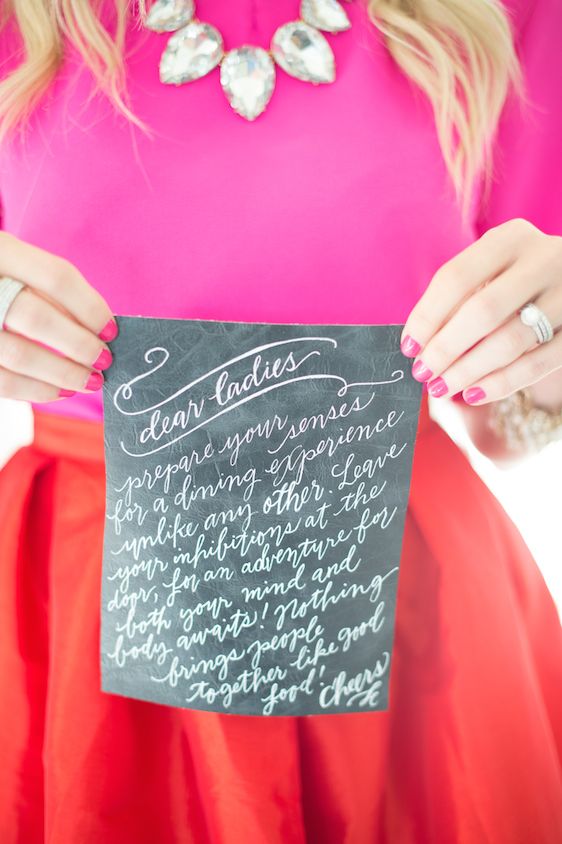 dear ladies
prepare your senses
for a dining experience
unlike any other. Leave
your inhibitions at the
door, for an adventure for
both your mind and
body awaits! Nothing
brings people
together like good
food! Cheers